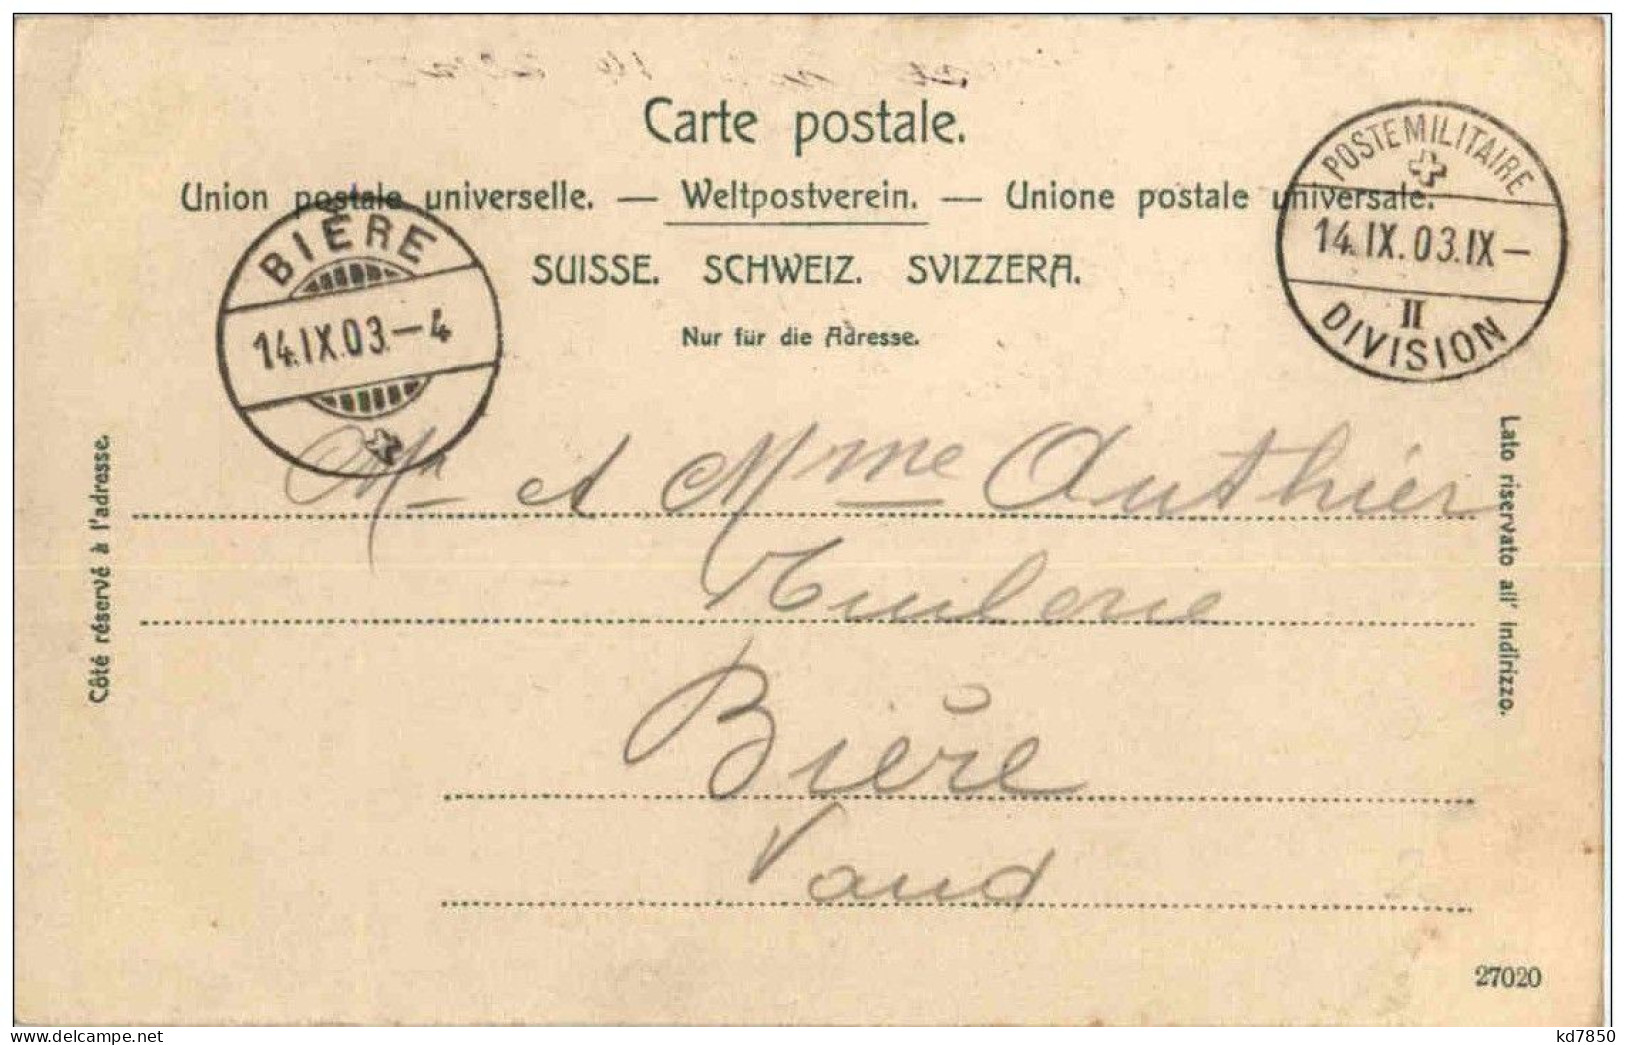 Carte postale.
Union postale universelle. — Weltpostverein. — Unione postale universale.
SUISSE. SCHWEIZ. SVIZZERA.
Nur für die Adresse.
BIÈRE
14.IX.03.–4
POSTE MILITAIRE
14.IX.03.IX–
II
DIVISION
Côté réservé à l'adresse.
Lato riservato all' indirizzo.
Mr et Mme Authier
Bière
Vaud
27020
kd7850